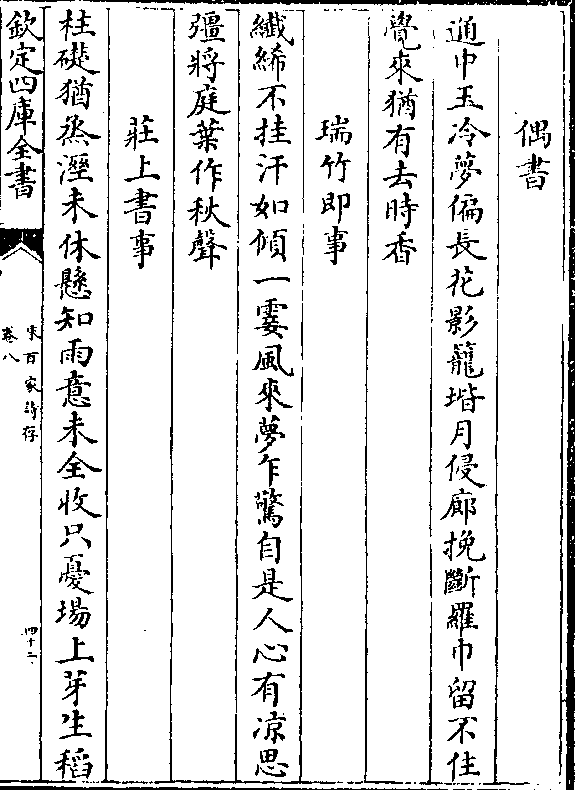 偶書
通中玉冷夢偏長花影籠堦月侵廊挽斷羅巾留不住
覺來猶有去時香
瑞竹即事
纖絺不挂汗如傾一霎風來夢乍驚自是人心有凉思
彊將庭葉作秋聲
莊上書事
柱礎猶烝溼未休懸知雨意未全收只憂場上芽生稻
欽定四庫全書
宋百家詩存
卷八
四十二